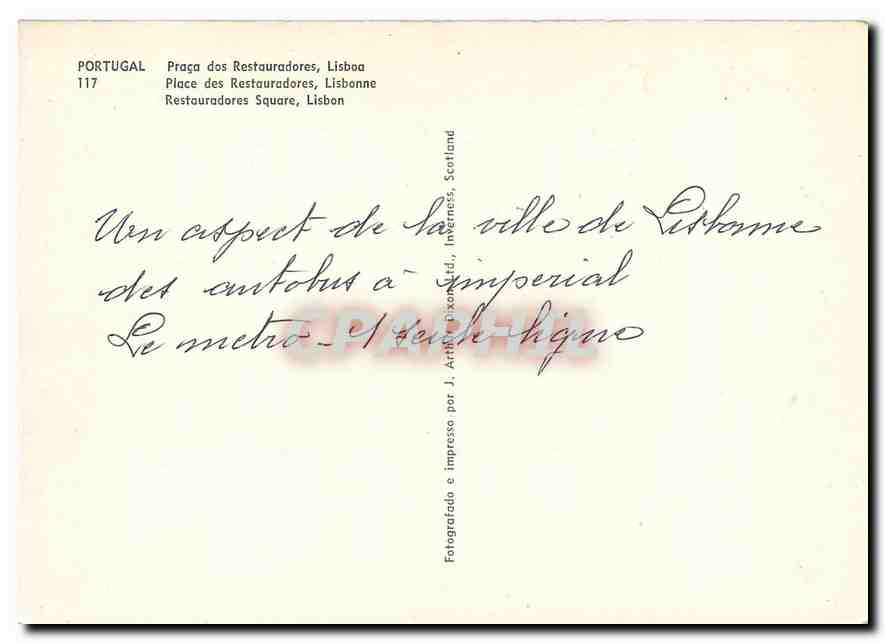 PORTUGAL Praça dos Restauradores, Lisboa
117 Place des Restauradores, Lisbonne
Restauradores Square, Lisbon
Un aspect de la ville de Lisbonne
des autobus à imperial
Le metro - 1 seule ligne
CPAPHIL
Fotografado e impresso por J. Arthur Dixon Ltd., Inverness, Scotland